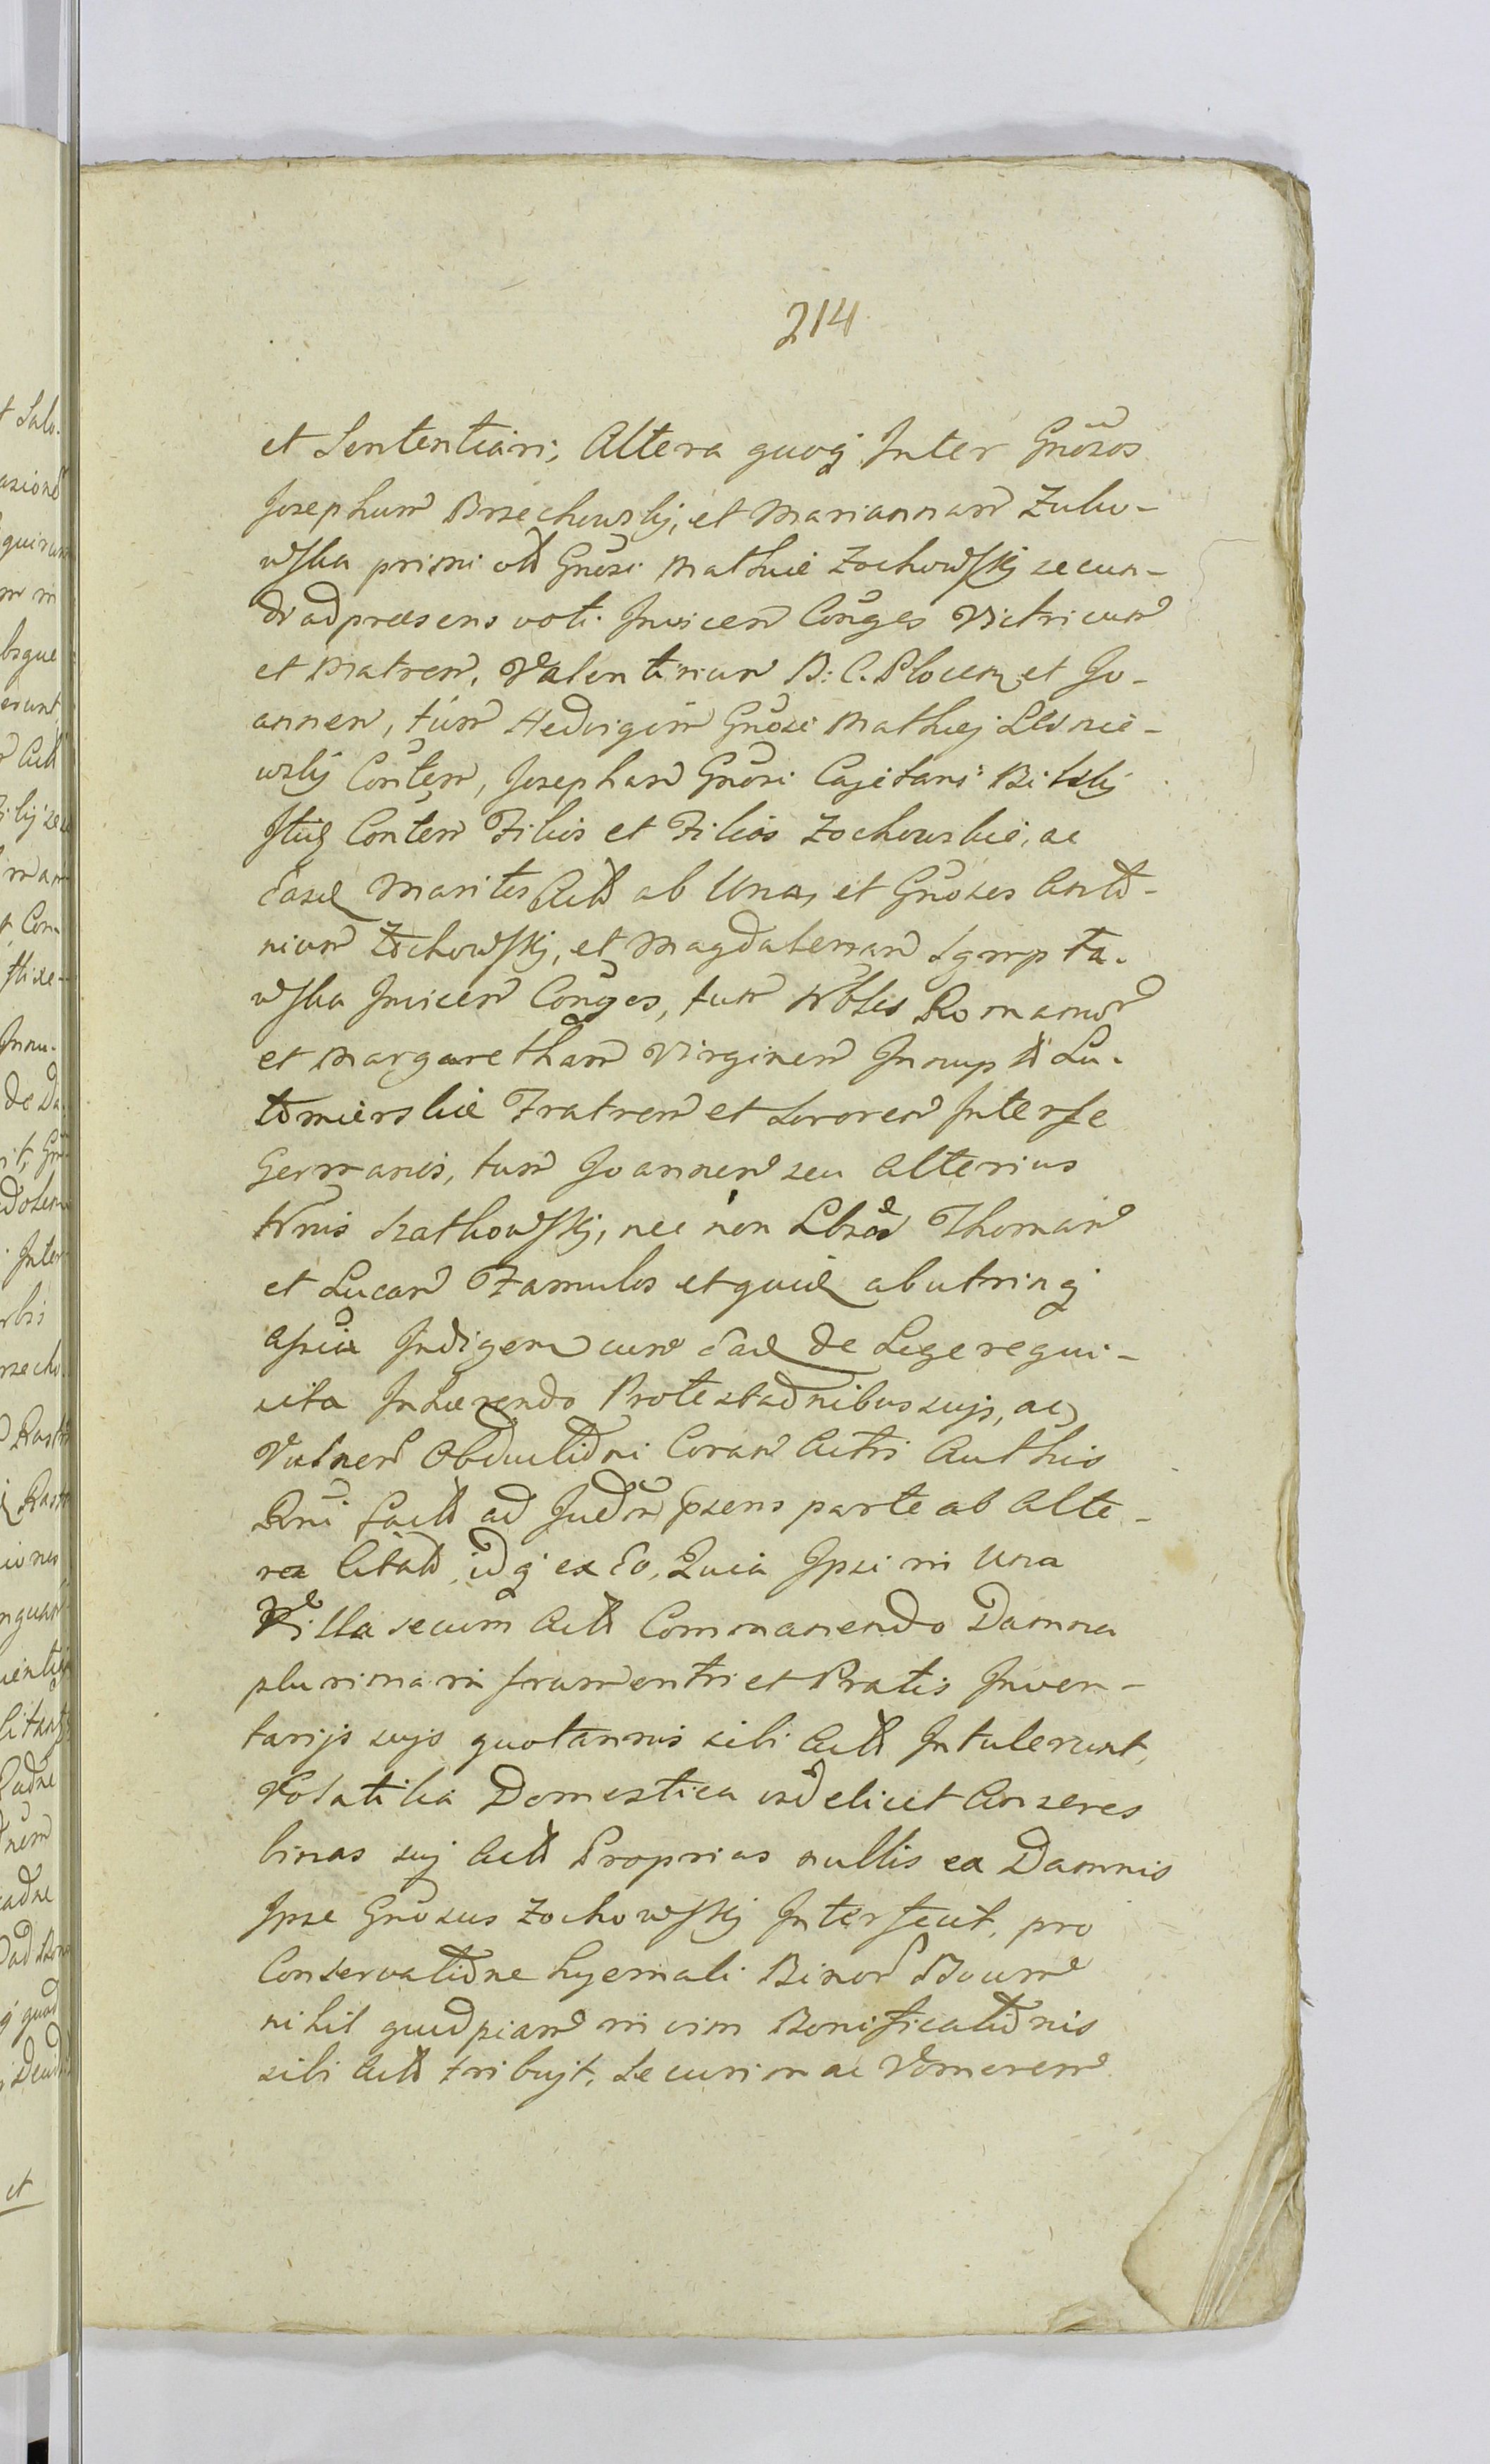 214
et Sententiari; Altera quoq Inter Gnosos
Josephum Brzechowskj, et Mariannam Zuko-
wska primi olt Gnosi Mathiæ Zochowskj secun-
di ad præsens voti Invicem Conges Victricum
et Matrem, Valentinum B: C. Plocen et Jo-
annem, tum Hedvigim Gnosi Mathiej Lisnie-
wskj Contem, Josepham Gnosi Cajetani Bitskj
Conten Filios et Filias Zochowskie, ac
Earz Maritos Actt ab Una, et Gnosos Anto-
nium Zochowskj, et Magdalenam Sgmpta-
wska Invicem Conges, tum Nobles Romanum
et Margaretham Virginem Innupt Lu-
tomierskie Fratrem et Sororem Inter se
Germanos, tum Joannem seu alterius
Nnis Szatkowskj, nec non Lbros Thomam
et Lucam Famulos et quid ab utrinq
Indigen cum Ead de Lege requi-
sita Inhærendo Protestadnibus sujs, ac
Vulner Obductidni Coram Actri Authis
Rni factt ad Judm psens parte ab Alte-
ra Citatt, idq ex Eo, Quia Ipsi in Una
Villa secum Actt Commanendo Damna
plurima in frumentri et Pratis Inven-
tarijs sujs quotannis sibi Actt Intulerunt,
Volatilia Domestica videlicet Anseres
binas suj Actt Proprias nullis ex Damnis
Ipse Gnosus Zochowskj Interfecit, pro
Conservatidne hyemali Binor Boum
nihil quidpiam in vim Bonificatidnis
sibi Actt tribujt, Securim ac Vomerem
et